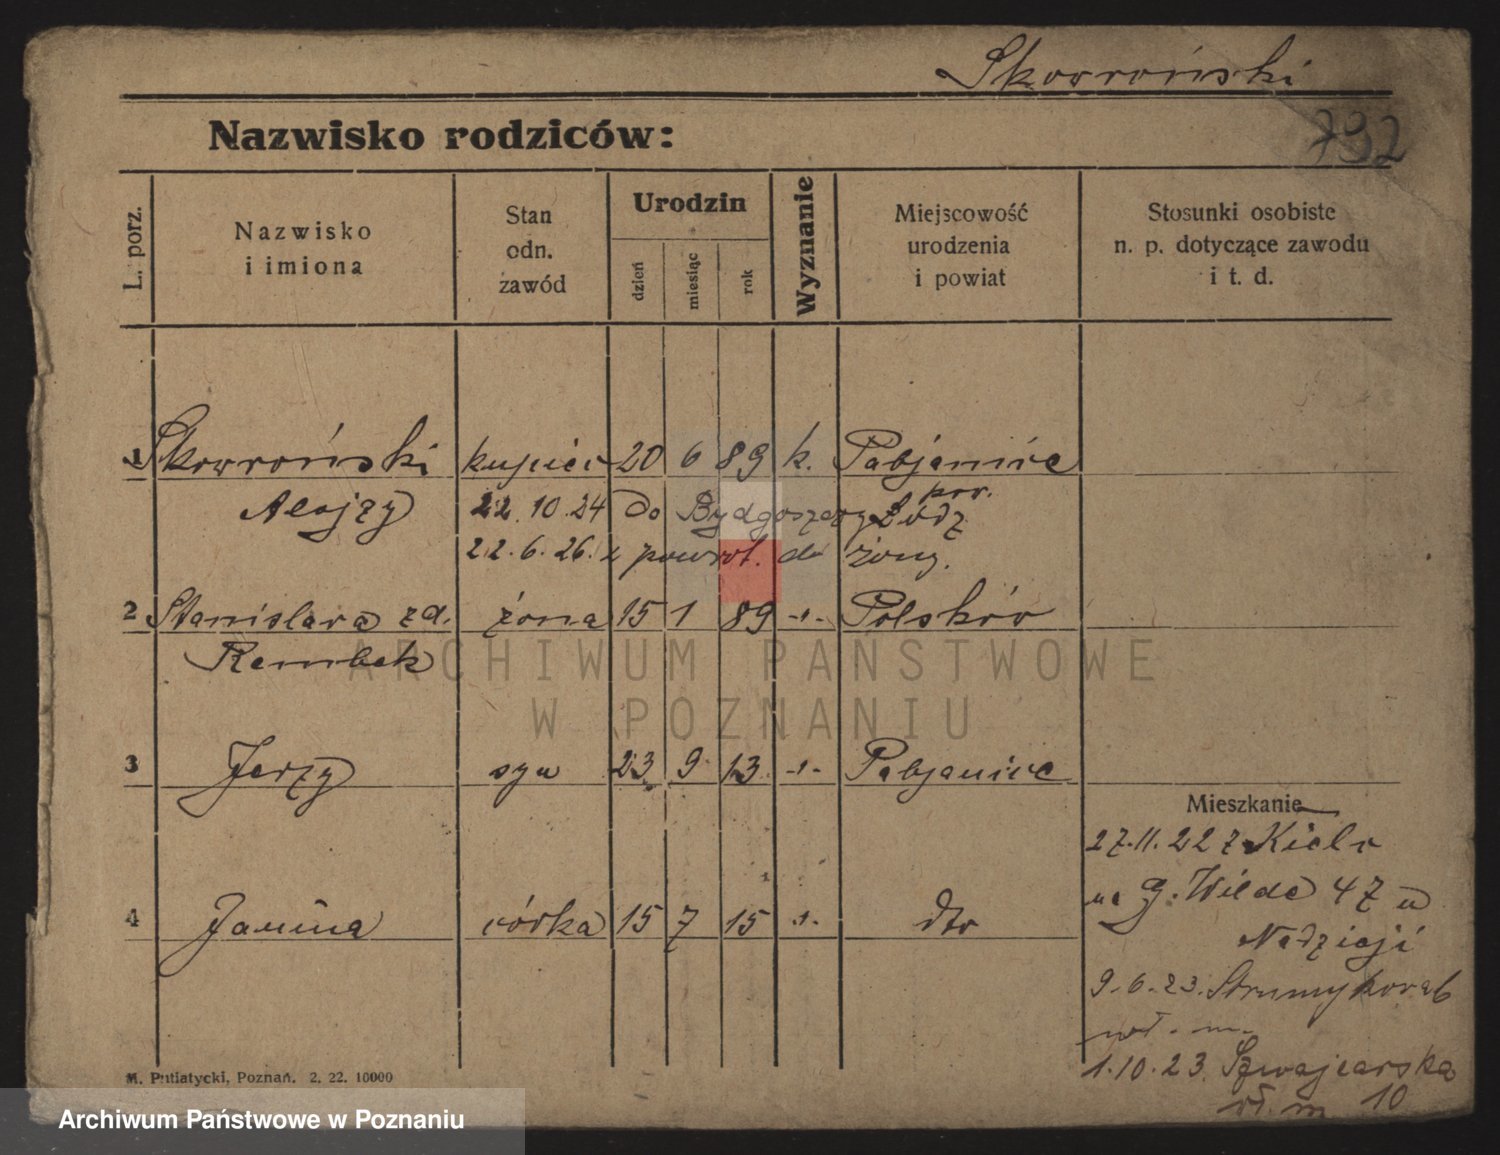 Skowroński
792
Nazwisko rodziców:
L. porz.
Nazwisko
i imiona
Stan
odn.
zawód
Urodzin
dzień
miesiąc
rok
Wyznanie
Miejscowość
urodzenia
i powiat
Stosunki osobiste
n. p. dotyczące zawodu
i t. d.
1 Skowroński kupiec 20 6 89 k. Pabjanice
Alojzy 22.10.24 do Bydgoszczy pow. Łódź
22.6.26. z powrot. do żony.
2 Stanisława zd. żona 15 1 89 -"- Polsków
Rembek
3 Jerzy syn 23 9 13 -"- Pabjanice
Mieszkanie
27.11.22 z Kielc
na G. Wilda 47 u
4 Janina córka 15 7 15 -"- dto
Nadzieji
9.6.23. Strumykowa 6
wł. m.
1.10.23. Szwajcarska
wł. m 10
M. Putiatycki, Poznań. 2. 22. 10000
ARCHIWUM PAŃSTWOWE
W POZNANIU
Archiwum Państwowe w Poznaniu